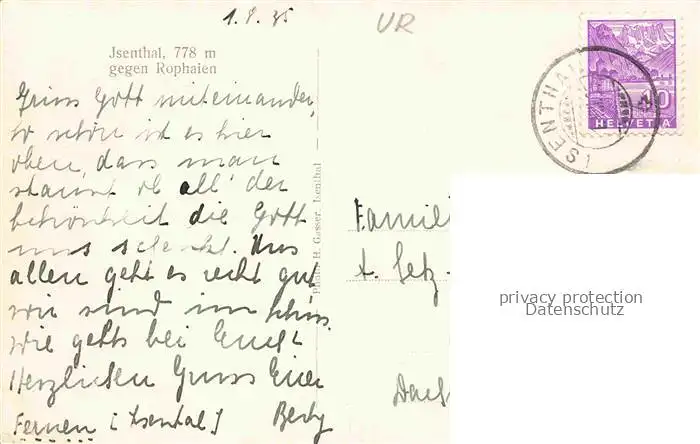 1.8.35
UR
Jsenthal, 778 m
gegen Rophaien
Grüss Gott miteinander,
so schön ist es hier
oben, dass man
staunt ob all' der
Schönheit die Gott
uns schenkt. Uns
allen geht es recht gut
wir sind im
wie gehts bei Euch?
Herzlichen Gruss Euer
Fernen (Isental) Berty
Photo H. Gasser, Isenthal
ISENTHAL
10
HELVETIA
Famili
A. Setz-
Dach
privacy protection
Datenschutz